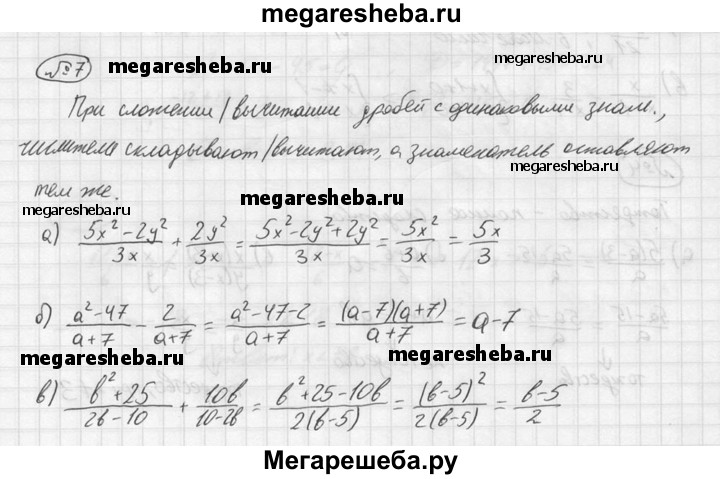 megaresheba.ru
№7
megaresheba.ru
При сложении/вычитании дробей с одинаковыми знам.,
числители складывают/вычитают, а знаменатель оставляют
megaresheba.ru
тем же.
megaresheba.ru
megaresheba.ru
а) (5x² - 2y²)/(3x) + (2y²)/(3x) = (5x² - 2y² + 2y²)/(3x) = (5x²)/(3x) = (5x)/3
б) (a² - 47)/(a + 7) - 2/(a + 7) = (a² - 47 - 2)/(a + 7) = ((a - 7)(a + 7))/(a + 7) = a - 7
megaresheba.ru
megaresheba.ru
в) (b² + 25)/(2b - 10) + (10b)/(10 - 2b) = (b² + 25 - 10b)/(2(b - 5)) = ((b - 5)²)/(2(b - 5)) = (b - 5)/2
Мегарешеба.ру